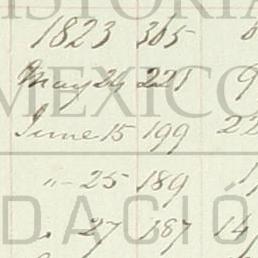 1823 365
May 24 221 9
June 15 199 22
" 25 189
" 27 187 14
HISTORIA
MEXICO
DACIÓ